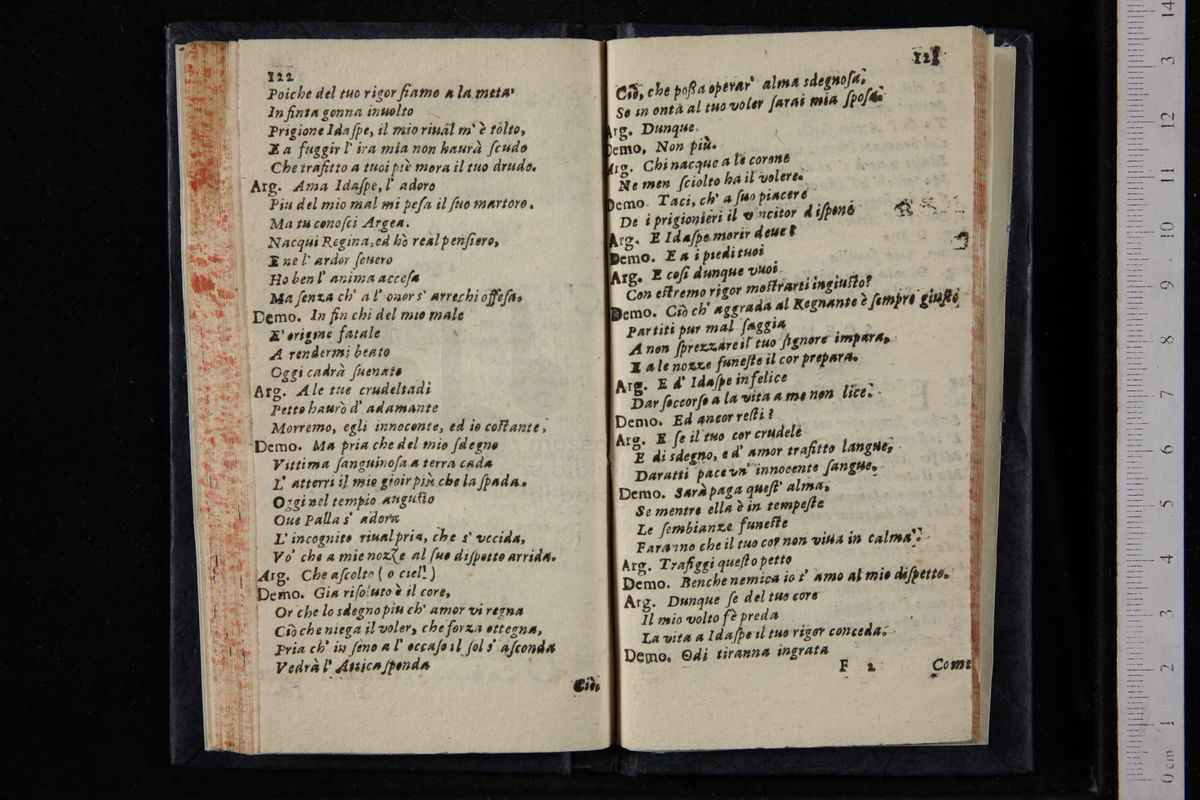 122
Poiche del tuo rigor siamo a la meta
In finta gonna inuolto
Prigione Idaſpe, il mio riual m' è tolto,
E a fuggir l' ira mia non haurà ſcudo
Che trafitto a tuoi piè mora il tuo drudo.
Arg. Ama Idaſpe, l' adoro
Piu del mio mal mi peſa il ſuo martoro.
Ma tu conoſci Argea.
Nacqui Regina, ed hò real penſiero,
E ne l' ardor ſeuero
Ho ben l' anima acceſa
Ma ſenza ch' a l' onor s' arrechi offeſa.
Demo. In fin chi del mio male
E' origine fatale
A rendermi beato
Oggi cadrà ſuenato
Arg. A le tue crudeltadi
Petto haurò d' adamante
Morremo, egli innocente, ed io coſtante.
Demo. Ma pria che del mio ſdegno
Vittima ſanguinoſa a terra cada
L' atterri il mio gioir più che la ſpada.
Oggi nel tempio auguſto
Oue Palla s' adora
L' incognito riual pria, che s' vccida,
Vo' che a mie nozze al ſuo diſpetto arrida.
Arg. Che aſcolto (o ciel!)
Demo. Gia riſoluto è il core,
Or che lo sdegno piu ch' amor vi regna
Ciò che niega il voler, che forza ottegna,
Pria ch' in ſeno a l' occaſo il ſol s' aſconda
Vedrà l' Attica ſponda
Ciò,
123
Ciò, che poſſa operar' alma sdegnoſa,
Se in onta al tuo voler ſarai mia ſpoſa.
Arg. Dunque.
Demo. Non più.
Arg. Chi nacque a le corone
Ne men ſciolto ha il volere.
Demo. Taci, ch' a ſuo piacere
De i prigionieri il vincitor diſpone
Arg. E Idaſpe morir deue?
Demo. E a i piedi tuoi
Arg. E coſi dunque vuoi
Con eſtremo rigor moſtrarti ingiuſto?
Demo. Ciò ch' aggrada al Regnante è ſempre giuſto
Partiti pur mal ſaggia
A non ſprezzare il tuo ſignore impara,
E a le nozze funeſte il cor prepara.
Arg. E d' Idaſpe infelice
Dar ſoccorſo a la vita a me non lice.
Demo. Ed ancor reſti?
Arg. E ſe il tuo cor crudele
E di sdegno, e d' amor trafitto langue,
Daratti pace vn' innocente ſangue.
Demo. Sarà paga queſt' alma,
Se mentre ella è in tempeſte
Le ſembianze funeſte
Faranno che il tuo cor non viua in calma.
Arg. Trafiggi queſto petto
Demo. Benche nemica io t' amo al mio diſpetto.
Arg. Dunque ſe del tuo core
Il mio volto fè preda
La vita a Idaſpe il tuo rigor conceda.
Demo. Odi tiranna ingrata
F 2
Come
0 cm 1 2 3 4 5 6 7 8 9 10 11 12 3 14